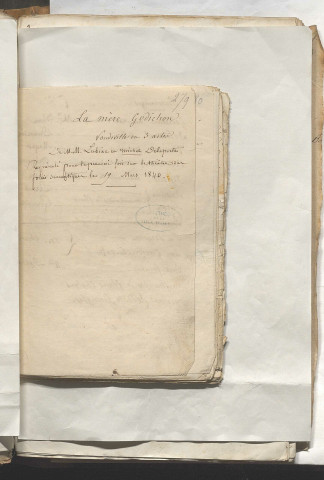 La mère Godichon
Vaudeville en 3 actes
De M.M. Lubize et Michel Delaporte
Représenté pour la première fois sur le théâtre des
folies dramatiques le 19 Mars 1840.